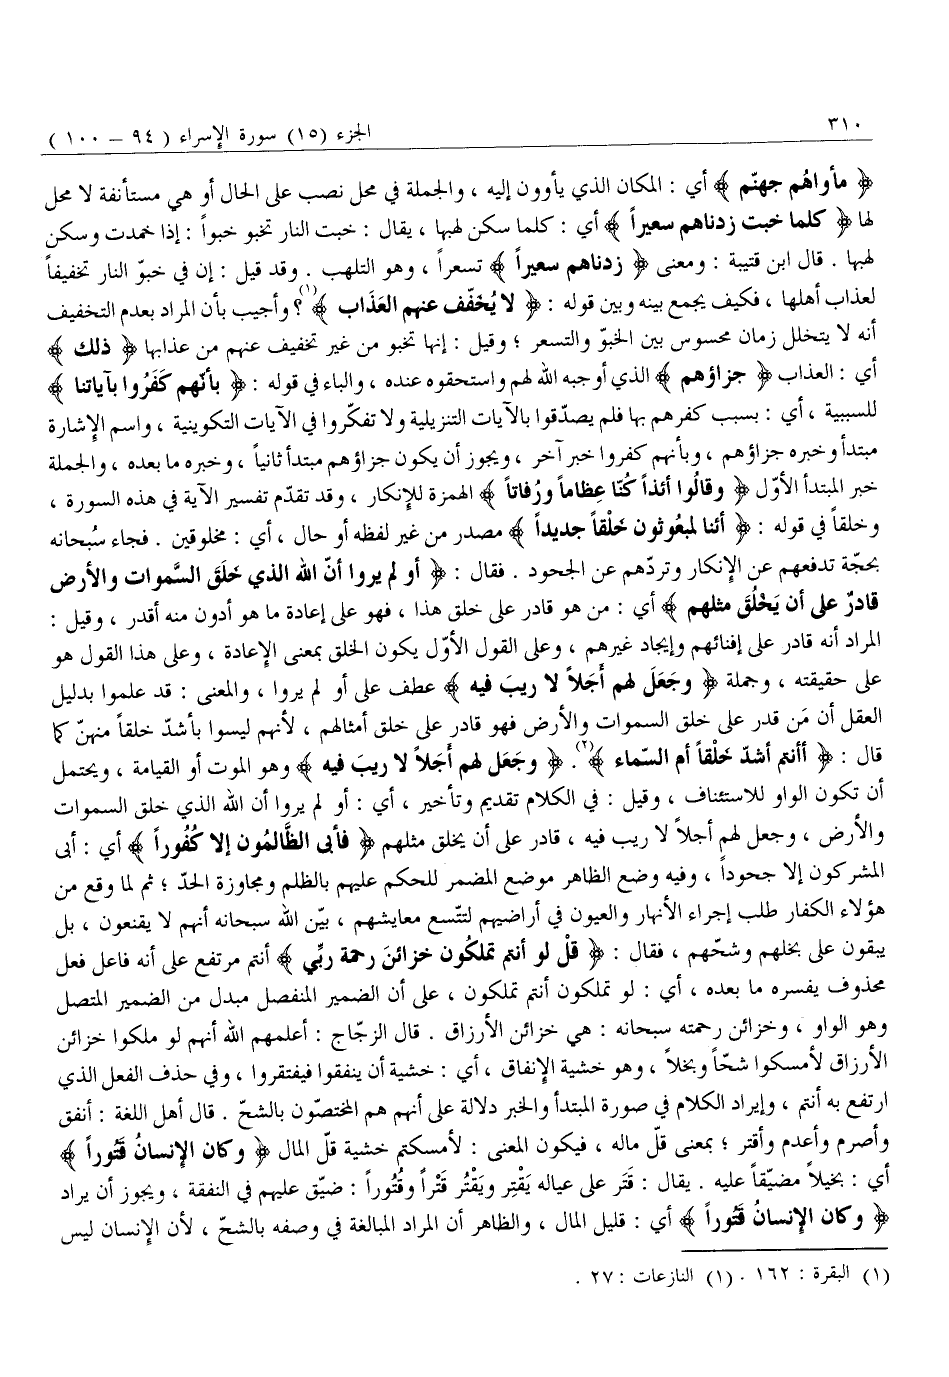 ٣١٠
الجزء (١٥) سورة الإسراء ( ٩٤ – ١٠٠ )
﴿ مأواهُم جهنّم ﴾ أي : المكان الذي يأوون إليه ، والجملة في محل نصب على الحال أو هي مستأنفة لا محل
لها ﴿ كلما خبت زدناهم سعيراً ﴾ أي : كلما سكن لهبها ، يقال : خبت النار تخبو خبواً : إذا خمدت وسكن
لهبها . قال ابن قتيبة : ومعنى ﴿ زدناهم سعيراً ﴾ تسعراً ، وهو التلهب . وقد قيل : إن في خبوّ النار تخفيفاً
لعذاب أهلها ، فكيف يجمع بينه وبين قوله : ﴿ لا يُخفّف عنهم العَذَاب ﴾(١) ؟ وأجيب بأن المراد بعدم التخفيف
أنه لا يتخلل زمان محسوس بين الخبوّ والتسعر ؛ وقيل : إنها تخبو من غير تخفيف عنهم من عذابها ﴿ ذلك ﴾
أي : العذاب ﴿ جزاؤهم ﴾ الذي أوجبه الله لهم واستحقوه عنده ، والباء في قوله : ﴿ بأنّهم كَفَرُوا بآياتنا ﴾
للسببية ، أي : بسبب كفرهم بها فلم يصدّقوا بالآيات التنزيلية ولا تفكّروا في الآيات التكوينية ، واسم الإشارة
مبتدأ وخبره جزاؤهم ، وبأنهم كفروا خبر آخر ، ويجوز أن يكون جزاؤهم مبتدأ ثانياً ، وخبره ما بعده ، والجملة
خبر المبتدأ الأوّل ﴿ وقالُوا أئذاً كُنّا عِظاماً ورُفاتاً ﴾ الهمزة للإنكار ، وقد تقدّم تفسير الآية في هذه السورة ،
وخلقاً في قوله : ﴿ أئنا لمبعُوثون خَلْقاً جديداً ﴾ مصدر من غير لفظه أو حال ، أي : مخلوقين . فجاء سُبحانه
بحجّة تدفعهم عن الإنكار وتردّهم عن الجحود . فقال : ﴿ أو لم يروا أنّ الله الذي خَلَقَ السَّموات والأرض
قادرٌ على أن يَخْلُقَ مثلهم ﴾ أي : من هو قادر على خلق هذا ، فهو على إعادة ما هو أدون منه أقدر ، وقيل :
المراد أنه قادر على إفنائهم وإيجاد غيرهم ، وعلى القول الأوّل يكون الخلق بمعنى الإعادة ، وعلى هذا القول هو
على حقيقته ، وجملة ﴿ وجَعَلَ لهم أَجَلاً لا ريبَ فيه ﴾ عطف على أو لم يروا ، والمعنى : قد علموا بدليل
العقل أن مَن قدر على خلق السموات والأرض فهو قادر على خلق أمثالهم ، لأنهم ليسوا بأشدّ خلقاً منهنّ كما
قال : ﴿ أأنتم أشدّ خَلْقاً أم السّماء ﴾(٢) . ﴿ وجَعَل لهم أَجَلاً لا ريبَ فيه ﴾ وهو الموت أو القيامة ، ويحتمل
أن تكون الواو للاستئناف ، وقيل : في الكلام تقديم وتأخير ، أي : أو لم يروا أن الله الذي خلق السموات
والأرض ، وجعل لهم أجلاً لا ريب فيه ، قادر على أن يخلق مثلهم ﴿ فأبى الظَّالمُون إلا كُفُوراً ﴾ أي : أبى
المشركون إلا جحوداً ، وفيه وضع الظاهر موضع المضمر للحكم عليهم بالظلم ومجاوزة الحدّ ؛ ثم لما وقع من
هؤلاء الكفار طلب إجراء الأنهار والعيون في أراضيهم لتتّسع معايشهم ، بيّن الله سبحانه أنهم لا يقنعون ، بل
يبقون على بخلهم وشحّهم ، فقال : ﴿ قلْ لو أنتم تملكُون خزائنَ رحمة ربِّي ﴾ أنتم مرتفع على أنه فاعل فعل
محذوف يفسره ما بعده ، أي : لو تملكون أنتم تملكون ، على أن الضمير المنفصل مبدل من الضمير المتصل
وهو الواو ، وخزائن رحمته سبحانه : هي خزائن الأرزاق . قال الزجّاج : أعلمهم الله أنهم لو ملكوا خزائن
الأرزاق لأمسكوا شحّاً وبخلاً ، وهو خشية الإنفاق ، أي : خشية أن ينفقوا فيفتقروا ، وفي حذف الفعل الذي
ارتفع به أنتم ، وإيراد الكلام في صورة المبتدأ والخبر دلالة على أنهم هم المختصّون بالشحّ . قال أهل اللغة : أنفق
وأصرم وأعدم وأقتر ؛ بمعنى قلّ ماله ، فيكون المعنى : لأمسكتم خشية قلّ المال ﴿ وكان الإنسانُ قَتُوراً ﴾
أي : بخيلاً مضيّقاً عليه . يقال : قَتَر على عياله يَقْتِر ويَقْتُر قَتْراً وقُتُوراً : ضيّق عليهم في النفقة ، ويجوز أن يراد
﴿ وكان الإنسانُ قَتُوراً ﴾ أي : قليل المال ، والظاهر أن المراد المبالغة في وصفه بالشحّ ، لأن الإنسان ليس
(١) البقرة : ١٦٢ . (١) النازعات : ٢٧ .